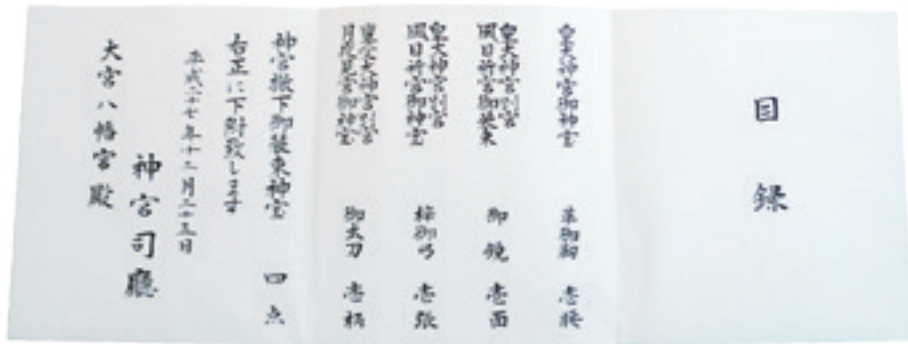 目録
皇大神宮御神宝 革御靫 壱腰
皇大神宮別宮
風日祈宮御装束 御鏡 壱面
皇大神宮別宮
風日祈宮御神宝 梓御弓 壱張
豊受大神宮別宮
月夜見宮御神宝 御太刀 壱柄
神宮撤下御装束神宝 四点
右正に下附致します
平成二十七年十二月二十五日
神宮司廳
大宮八幡宮殿